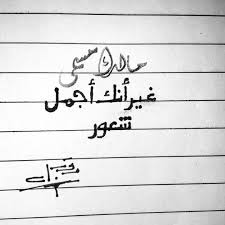 مالك مسمى
غير أنك أجمل
شعور